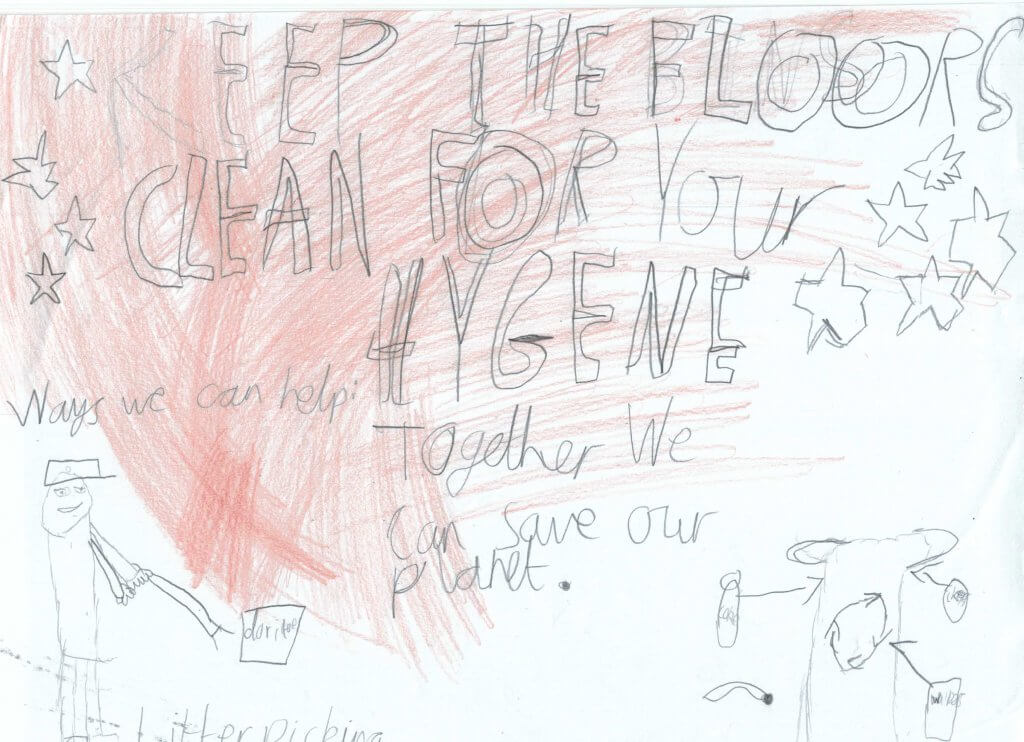 KEEP THE FLOORS
CLEAN FOR YOUR
HYGENE
Ways we can help:
Together We
Can save our
planet.
Litter picking